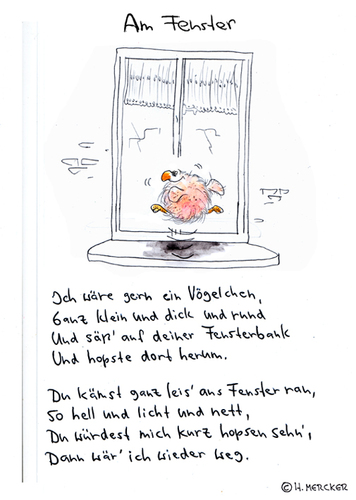 Am Fenster
Ich wäre gern ein Vögelchen,
Ganz klein und dick und rund
Und säß' auf deiner Fensterbank
Und hopste dort herum.
Du kämst ganz leis' ans Fenster ran,
So hell und licht und nett,
Du würdest mich kurz hopsen sehn',
Dann wär' ich wieder weg.
© H. MERCKER